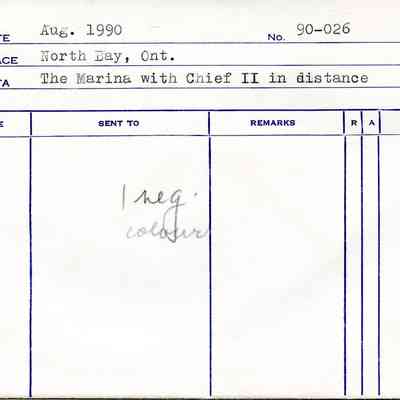 TE Aug. 1990 No. 90-026
ACE North Bay, Ont.
TA The Marina with Chief II in distance
E SENT TO REMARKS R A
1 neg.
colour